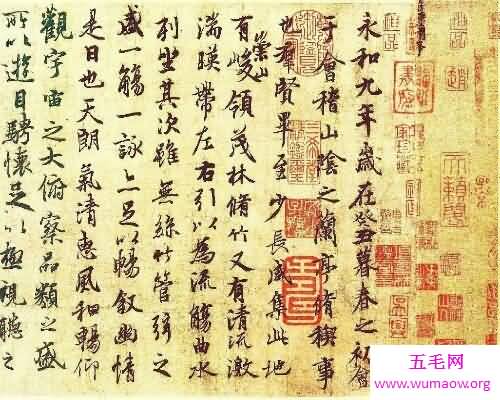 永和九年歲在癸丑暮春之初會
于會稽山陰之蘭亭脩稧事
也群賢畢至少長咸集此地
有崇山峻領茂林脩竹又有清流激
湍暎帶左右引以為流觴曲水
列坐其次雖無絲竹管弦之
盛一觴一詠亦足以暢敘幽情
是日也天朗氣清惠風和暢仰
觀宇宙之大俯察品類之盛
所以遊目騁懷足以極視聽之
五毛网
www.wumaow.org